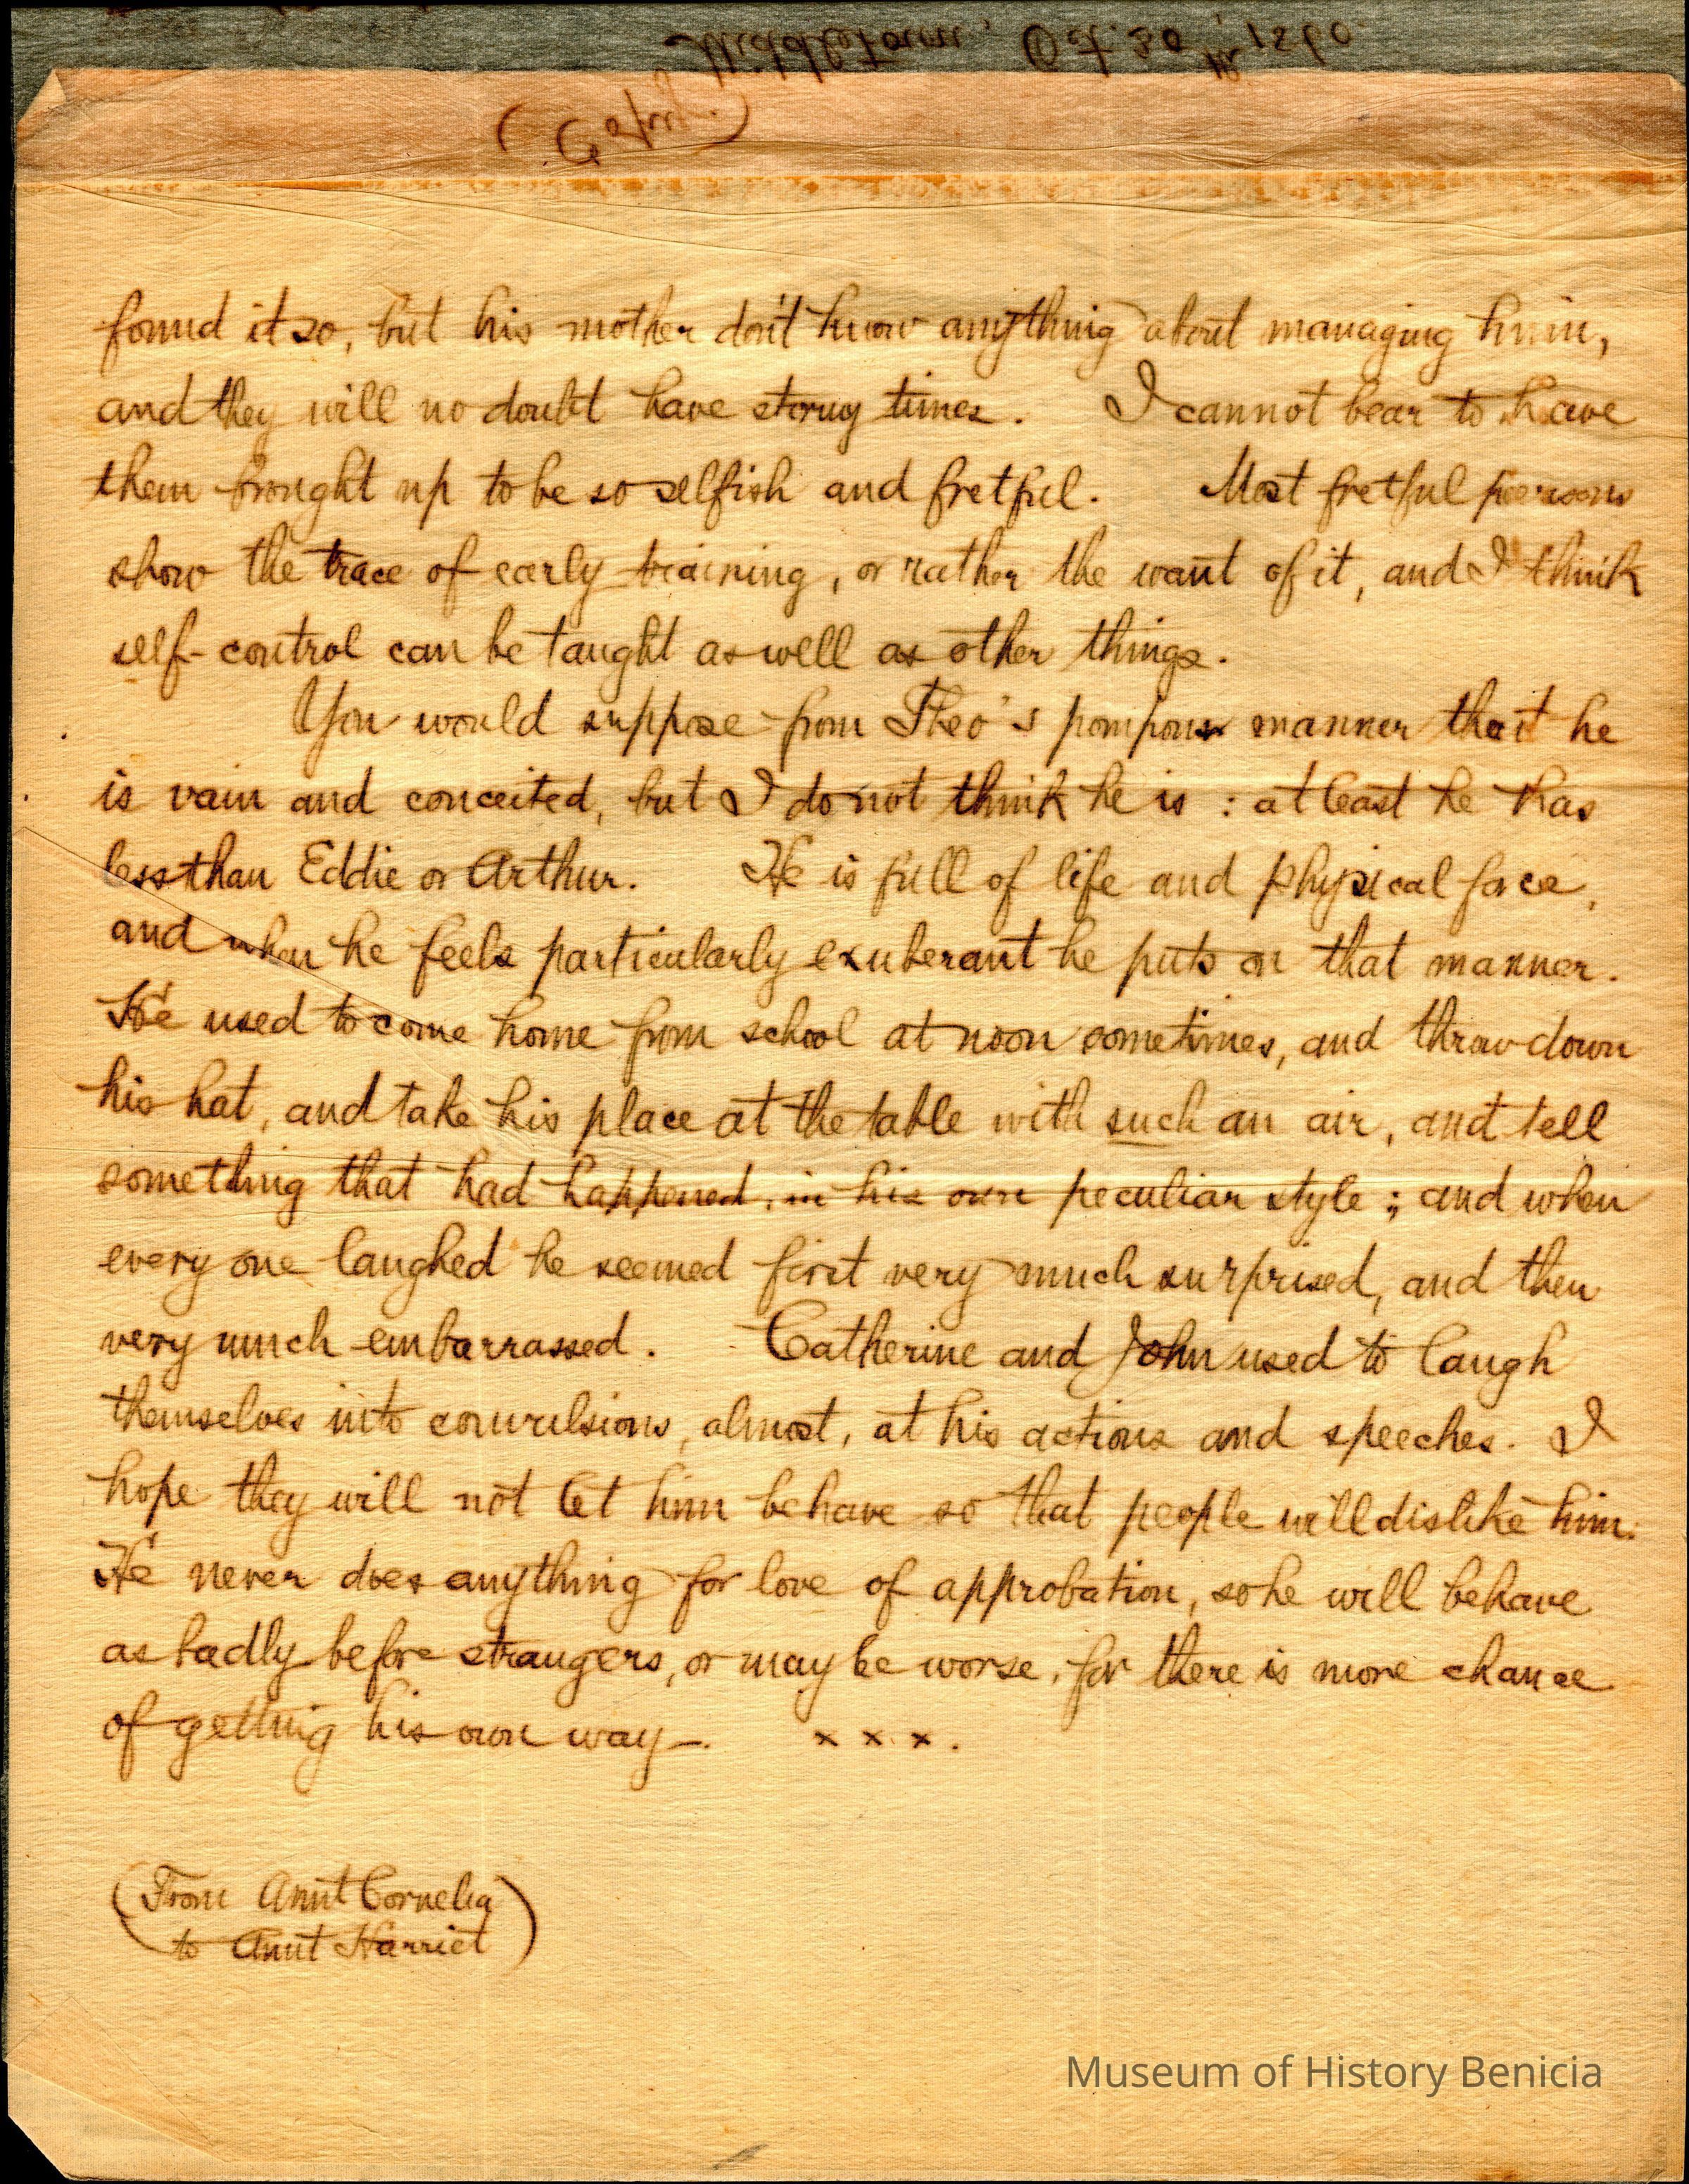 Middletown, Oct. 30th, 1860.
(Copied.)
found it so, but his mother don't know anything about managing him,
and they will no doubt have stormy times. I cannot bear to have
them brought up to be so selfish and fretful. Most fretful persons
show the trace of early training, or rather the want of it, and I think
self-control can be taught as well as other things.
You would suppose from Theo's pompous manner that he
is vain and conceited, but I do not think he is : at least he has
less than Eddie or Arthur. He is full of life and physical force,
and when he feels particularly exuberant he puts on that manner.
He used to come home from school at noon sometimes, and throw down
his hat, and take his place at the table with such an air, and tell
something that had happened, in his own peculiar style ; and when
every one laughed he seemed first very much surprised, and then
very much embarrassed. Catherine and John used to laugh
themselves into convulsions, almost, at his actions and speeches. I
hope they will not let him behave so that people will dislike him.
He never does anything for love of approbation, so he will behave
as badly before strangers, or may be worse, for there is more chance
of getting his own way—. x x x .
(From Aunt Cornelia
to Aunt Harriet)
Museum of History Benicia